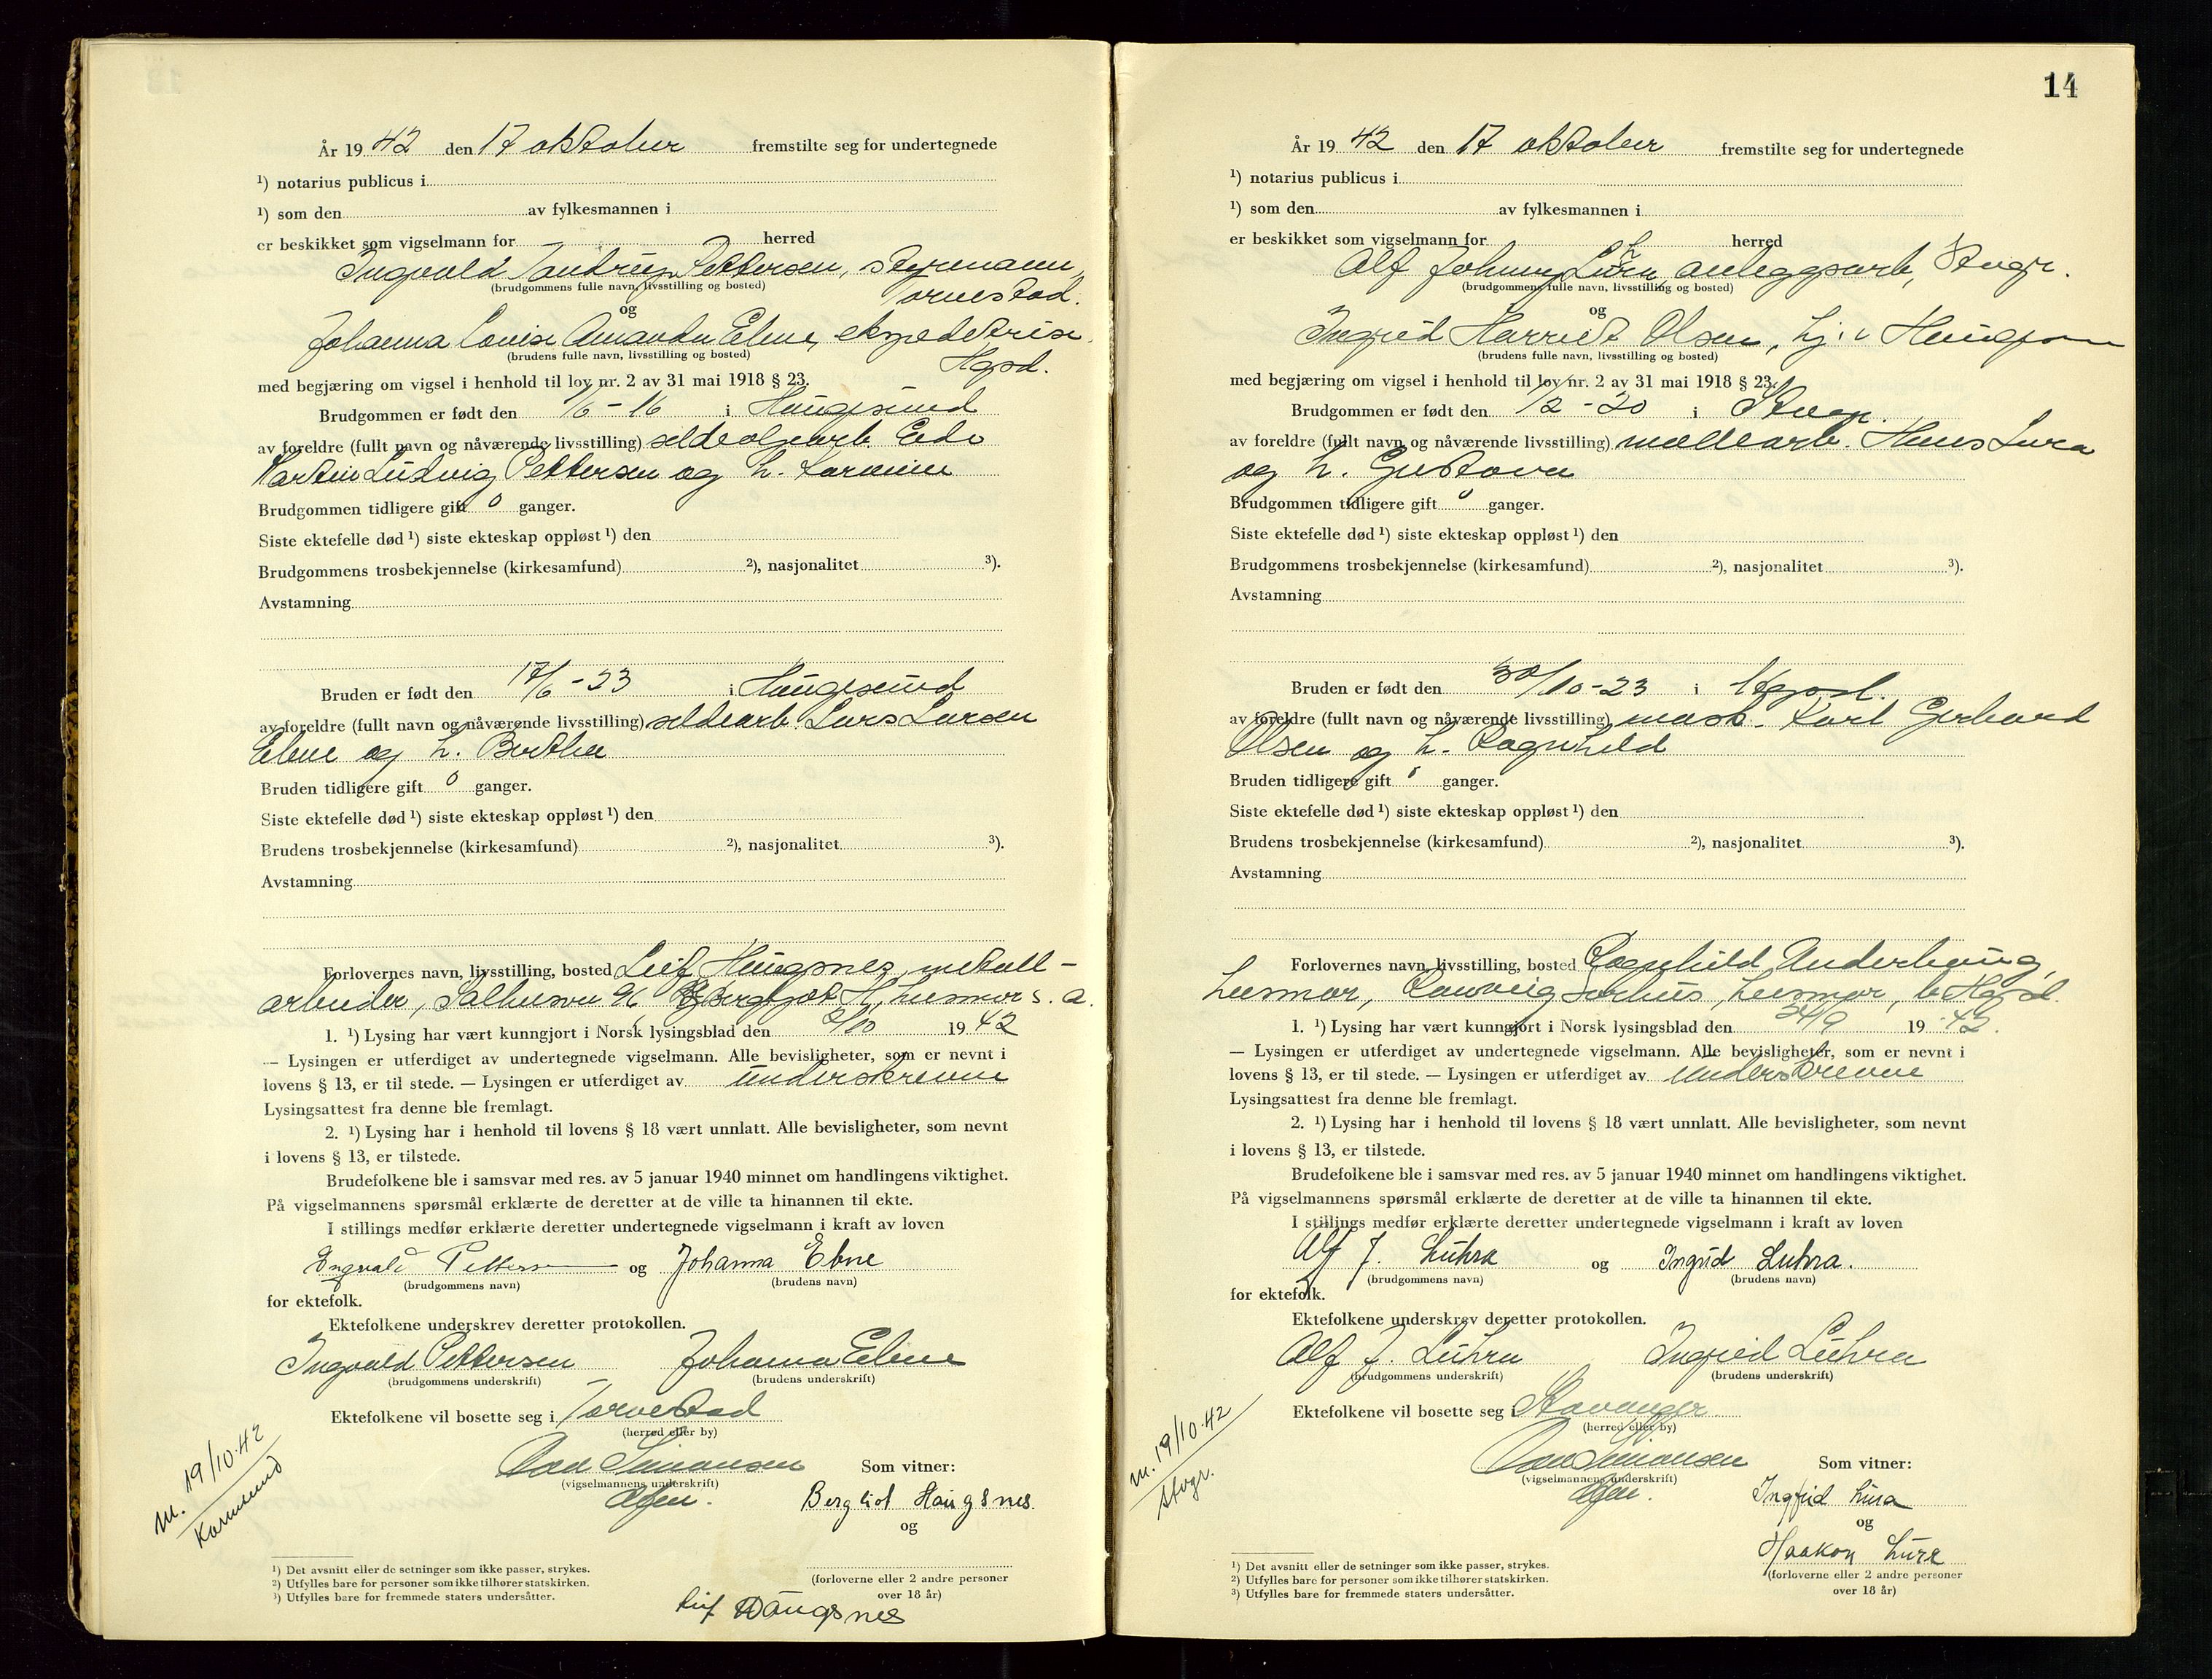 År 19 42 den 17 oktober fremstilte seg for undertegnede
¹) notarius publicus i
¹) som den av fylkesmannen i
er beskikket som vigselmann for herred
Ingvald Pettersen, styrmann,
(brudgommens fulle navn, livsstilling og bosted)
Torvestad.
og
Johanna Lovise Amanda Ebne, ekspedtrise
(brudens fulle navn, livsstilling og bosted)
Hgsd.
med begjæring om vigsel i henhold til lov nr. 2 av 31 mai 1918 § 23.
Brudgommen er født den 1/6 - 16 i Haugesund
av foreldre (fullt navn og nåværende livsstilling)
Martin Ludvig Pettersen og h.
Brudgommen tidligere gift 0 ganger.
Siste ektefelle død ¹) siste ekteskap oppløst ¹) den
Brudgommens trosbekjennelse (kirkesamfund) ²), nasjonalitet ³).
Avstamning
Bruden er født den 17/6 - 23 i Haugesund
av foreldre (fullt navn og nåværende livsstilling) sildearb. Lars Larsen
Ebne og h. Berthe
Bruden tidligere gift 0 ganger.
Siste ektefelle død ¹) siste ekteskap oppløst ¹) den
Brudens trosbekjennelse (kirkesamfund) ²), nasjonalitet ³).
Avstamning
Forlovernes navn, livsstilling, bosted Leif Haugsnes, metall-
arbeider, Salhusvn 96 H, husmor s. a.
1. ¹) Lysing har vært kunngjort i Norsk lysingsblad den 2/10 19 42
— Lysingen er utferdiget av undertegnede vigselmann. Alle bevisligheter, som er nevnt i
lovens § 13, er til stede. — Lysingen er utferdiget av underskrevne
Lysingsattest fra denne ble fremlagt.
2. ¹) Lysing har i henhold til lovens § 18 vært unnlatt. Alle bevisligheter, som nevnt
i lovens § 13, er tilstede.
Brudefolkene ble i samsvar med res. av 5 januar 1940 minnet om handlingens viktighet.
På vigselmannens spørsmål erklærte de deretter at de ville ta hinannen til ekte.
I stillings medfør erklærte deretter undertegnede vigselmann i kraft av loven
Ingvald Pettersen og Johanna Ebne
(brudgommens navn) (brudens navn)
for ektefolk.
Ektefolkene underskrev deretter protokollen.
Ingvald Pettersen Johanna Ebne
(brudgommens underskrift) (brudens underskrift)
Ektefolkene vil bosette seg i Torvestad
(herred eller by)
Simonsen Som vitner:
(vigselmannens underskrift)
Bergliot Haugsnes.
og
m. 19/10.42
Karmsund
¹) Det avsnitt eller de setninger som ikke passer, strykes.
²) Utfylles bare for personer som ikke tilhører statskirken.
³) Utfylles bare for fremmede staters undersåtter.
(forloverne eller 2 andre personer
over 18 år)
Leif Haugsnes
14
År 19 42 den 17 oktober fremstilte seg for undertegnede
¹) notarius publicus i
¹) som den av fylkesmannen i
er beskikket som vigselmann for herred
Alf Johnny Lura anleggsarb, Stvgr.
(brudgommens fulle navn, livsstilling og bosted)
og
Ingrid Harriet Olsen, hj. i
(brudens fulle navn, livsstilling og bosted)
med begjæring om vigsel i henhold til lov nr. 2 av 31 mai 1918 § 23.
Brudgommen er født den 1/2 - 20 i Stvgr.
av foreldre (fullt navn og nåværende livsstilling) møllearb. Hans Lura
og h. Gustava
Brudgommen tidligere gift 0 ganger.
Siste ektefelle død ¹) siste ekteskap oppløst ¹) den
Brudgommens trosbekjennelse (kirkesamfund) ²), nasjonalitet ³).
Avstamning
Bruden er født den 30/10 - 23 i Hgsd.
av foreldre (fullt navn og nåværende livsstilling) mask. Karl Gerhard
Olsen og h. Ragnhild
Bruden tidligere gift 0 ganger.
Siste ektefelle død ¹) siste ekteskap oppløst ¹) den
Brudens trosbekjennelse (kirkesamfund) ²), nasjonalitet ³).
Avstamning
Forlovernes navn, livsstilling, bosted Ragnhild Underhaug,
husmor, husmor, b. Hgsd.
1. ¹) Lysing har vært kunngjort i Norsk lysingsblad den 24/9 19 42.
— Lysingen er utferdiget av undertegnede vigselmann. Alle bevisligheter, som er nevnt i
lovens § 13, er til stede. — Lysingen er utferdiget av underskrevne
Lysingsattest fra denne ble fremlagt.
2. ¹) Lysing har i henhold til lovens § 18 vært unnlatt. Alle bevisligheter, som nevnt
i lovens § 13, er tilstede.
Brudefolkene ble i samsvar med res. av 5 januar 1940 minnet om handlingens viktighet.
På vigselmannens spørsmål erklærte de deretter at de ville ta hinannen til ekte.
I stillings medfør erklærte deretter undertegnede vigselmann i kraft av loven
Alf J. Luhra og Ingrid Luhra.
(brudgommens navn) (brudens navn)
for ektefolk.
Ektefolkene underskrev deretter protokollen.
Alf J. Luhra Ingrid Luhra
(brudgommens underskrift) (brudens underskrift)
Ektefolkene vil bosette seg i Stavanger
(herred eller by)
Simonsen Som vitner:
(vigselmannens underskrift)
Ingfrid Lura
og
Haakon Lura
m. 19/10.42
Stvgr.
¹) Det avsnitt eller de setninger som ikke passer, strykes.
²) Utfylles bare for personer som ikke tilhører statskirken.
³) Utfylles bare for fremmede staters undersåtter.
(forloverne eller 2 andre personer
over 18 år)